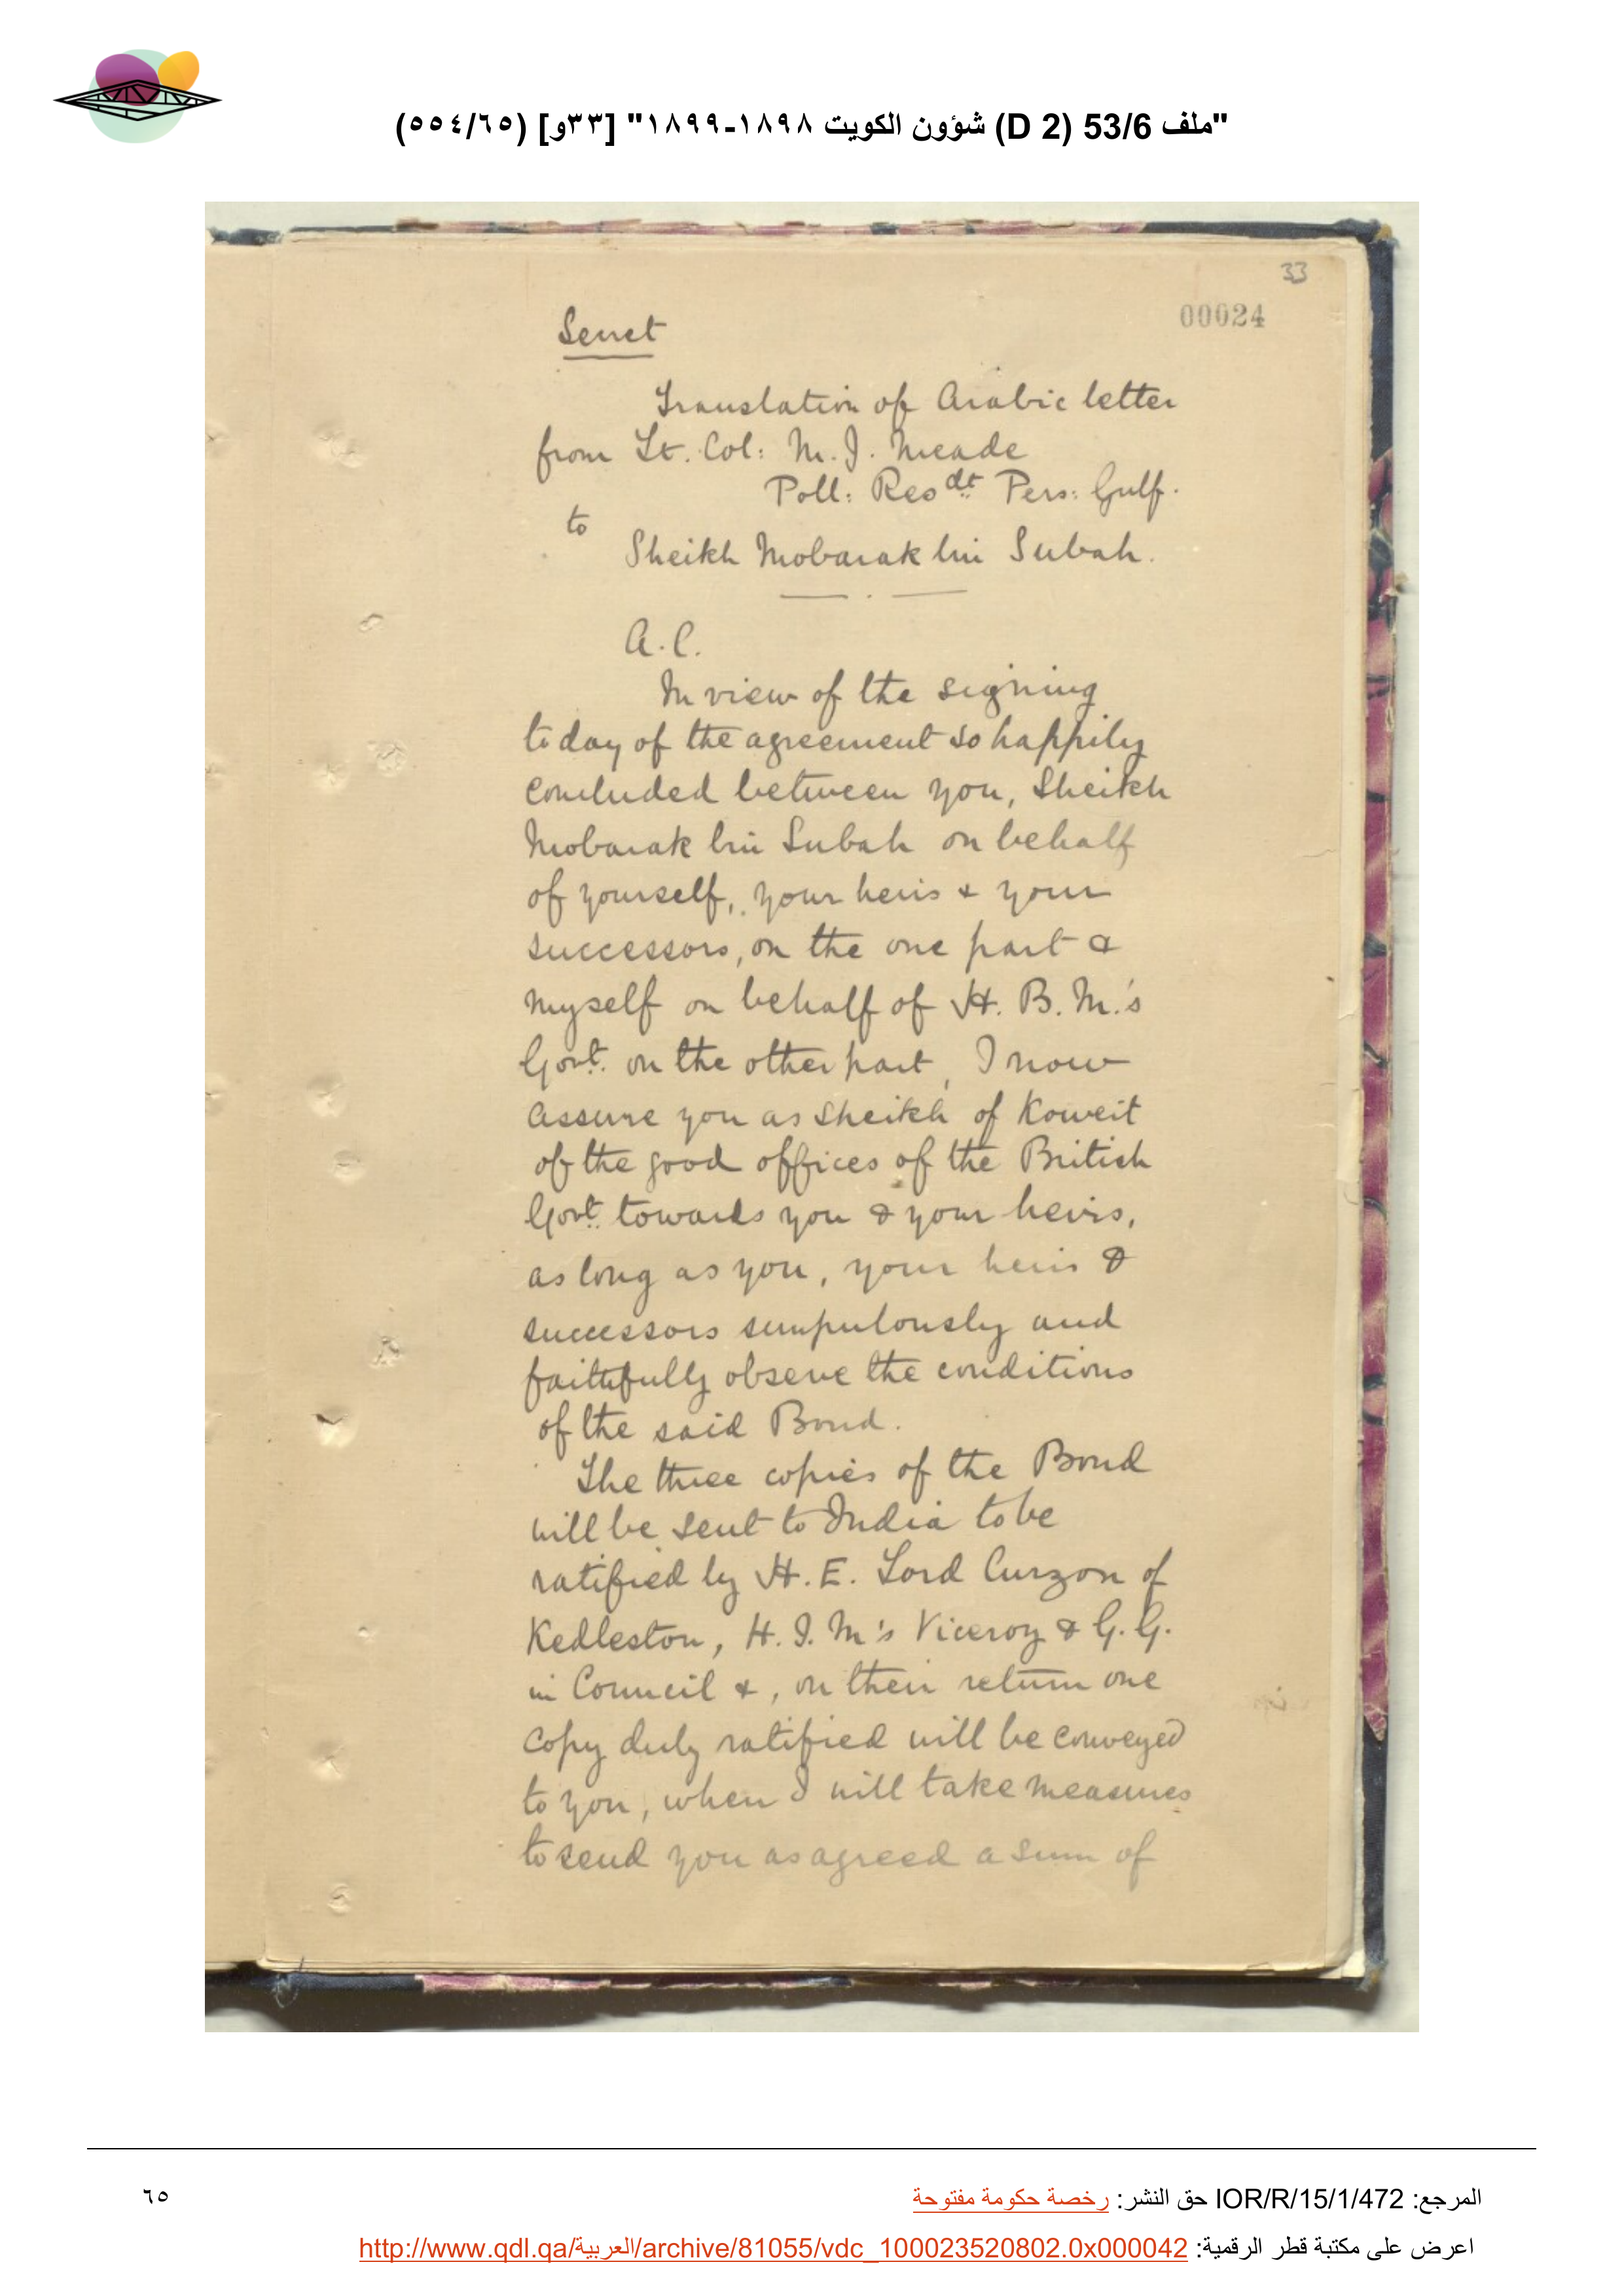 "ملف 53/6 (D 2) شؤون الكويت ١٨٩٨-١٨٩٩" [٣٣و] (٥٥٤/٦٥)
33
00024
Secret
Translation of Arabic letter
from Lt. Col: M. J. Meade
Poll: Resdt Pers: Gulf.
to
Sheikh Mobarak bin Subah.
A.C.
In view of the signing
today of the agreement so happily
concluded between you, Sheikh
Mobarak bin Subah on behalf
of yourself, your heirs & your
successors, on the one part &
myself on behalf of H. B. M.'s
Govt. on the other part, I now
assure you as Sheikh of Koweit
of the good offices of the British
Govt. towards you & your heirs,
as long as you, your heirs &
successors scrupulously and
faithfully observe the conditions
of the said Bond.
The three copies of the Bond
will be sent to India to be
ratified by H. E. Lord Curzon of
Kedleston, H. I. M's Viceroy & G. G.
in Council &, on their return one
copy duly ratified will be conveyed
to you, when I will take measures
to send you as agreed a sum of
المرجع: IOR/R/15/1/472 حق النشر: رخصة حكومة مفتوحة
٦٥
اعرض على مكتبة قطر الرقمية: http://www.qdl.qa/العربية/archive/81055/vdc_100023520802.0x000042